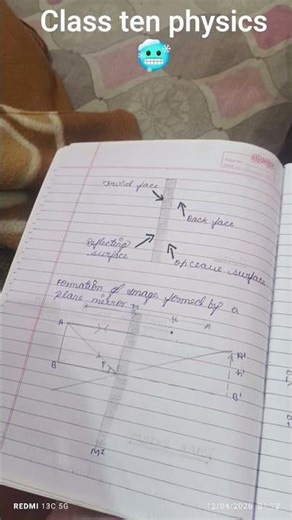 Class ten physics
🥶
face
Back face
Reflecting
surface
opceaue surface
Formation of image formed by a
plane mirror
M
A
A'
h'
B
P
B'
M'
REDMI 13C 5G
12/04/2026